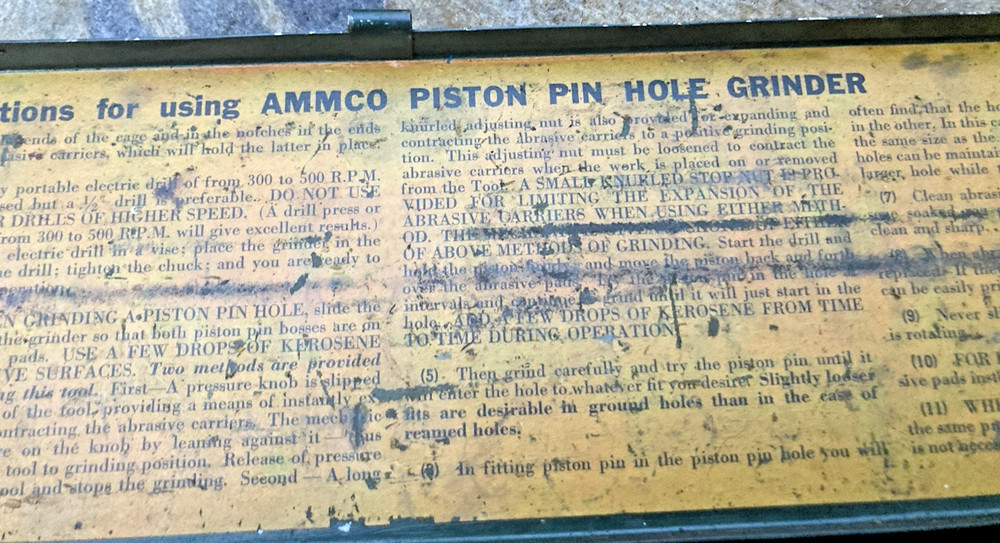 tions for using AMMCO PISTON PIN HOLE GRINDER
ends of the cage and in the notches in the ends
carriers, which will hold the latter in place.
y portable electric drill of from 300 to 500 R.P.M.
sed but a ½" drill is preferable. DO NOT USE
R DRILLS OF HIGHER SPEED. (A drill press or
rom 300 to 500 R.P.M. will give excellent results.)
electric drill in a vise; place the grinder in the
e drill; tighten the chuck; and you are ready to
N GRINDING A PISTON PIN HOLE, slide the
the grinder so that both piston pin bosses are on
pads. USE A FEW DROPS OF KEROSENE
VE SURFACES. Two methods are provided
ng this tool. First—A pressure knob is slipped
of the tool, providing a means of instantly ex-
ontracting the abrasive carriers. The mechanic
re on the knob by leaning against it
tool to grinding position. Release of pressure
ool and stops the grinding. Second — A long
knurled adjusting nut is also provided for expanding and
contracting the abrasive carriers to a positive grinding posi-
tion. This adjusting nut must be loosened to contract the
abrasive carriers when the work is placed on or removed
from the Tool. A SMALL KNURLED STOP NUT IS PRO-
VIDED FOR LIMITING THE EXPANSION OF THE
ABRASIVE CARRIERS WHEN USING EITHER METH-
OD. THE
OF ABOVE METHODS OF GRINDING. Start the drill and
hold the piston and move the piston back and forth
over the abrasive pads. Try the in the hole
intervals and continue to grind until it will just start in the
hole. ADD A FEW DROPS OF KEROSENE FROM TIME
TO TIME DURING OPERATION
(5). Then grind carefully and try the piston pin until it
will enter the hole to whatever fit you desire. Slightly looser
fits are desirable in ground holes than in the case of
reamed holes.
In fitting piston pin in the piston pin hole you will
often find that the ho
in the other. In this c
the same size as the
holes can be maintai
larger, hole while
(7) Clean abras
soaked
clean and sharp.
When abr
If the
can be easily pr
(9) Never sh
is rotating.
(10) FOR
sive pads inst
(11) WH
the same pa
is not nece